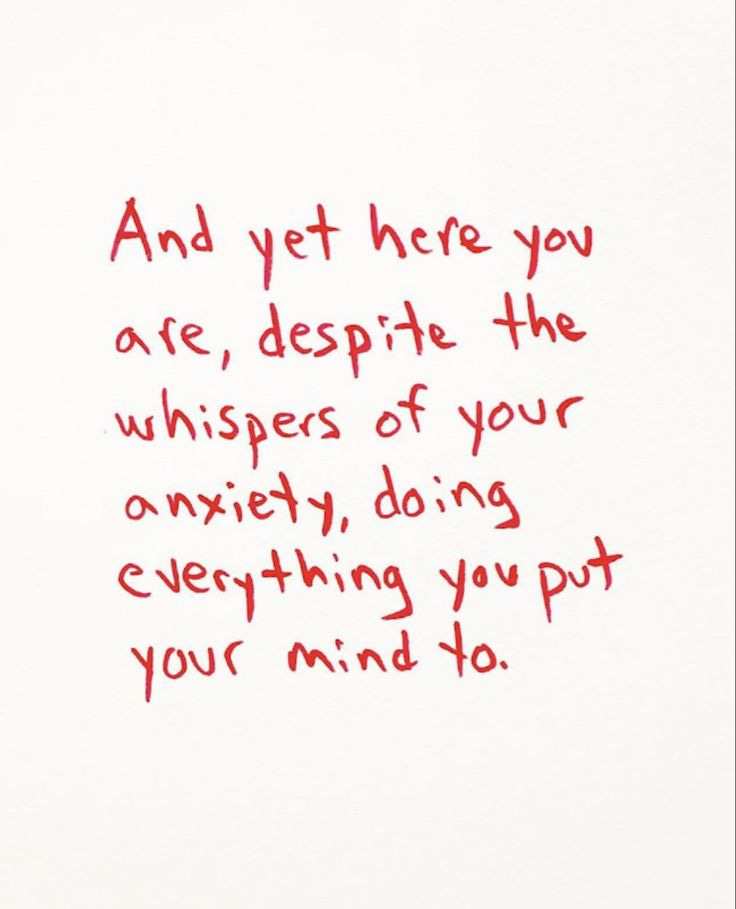 And yet here you
are, despite the
whispers of your
anxiety, doing
everything you put
your mind to.